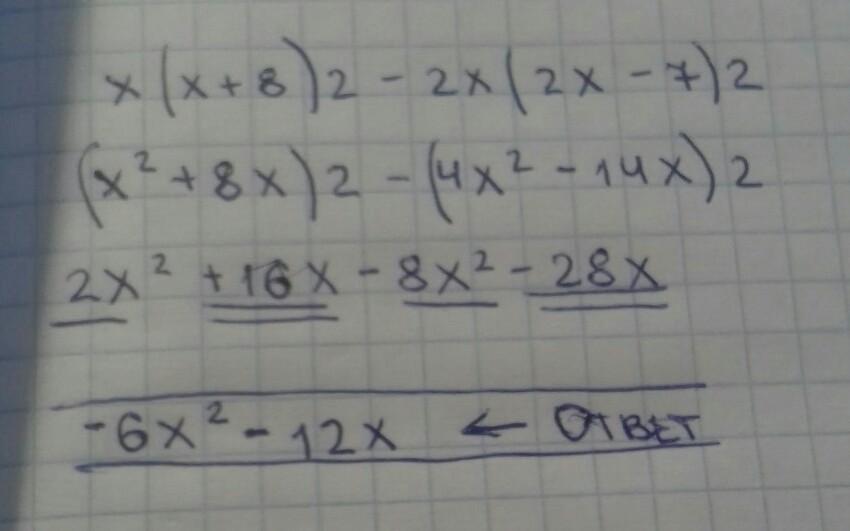 x(x+8)2 - 2x(2x-7)2
(x²+8x)2 - (4x²-14x)2
2x² +16x - 8x² - 28x
-6x² - 12x ← ОТВЕТ